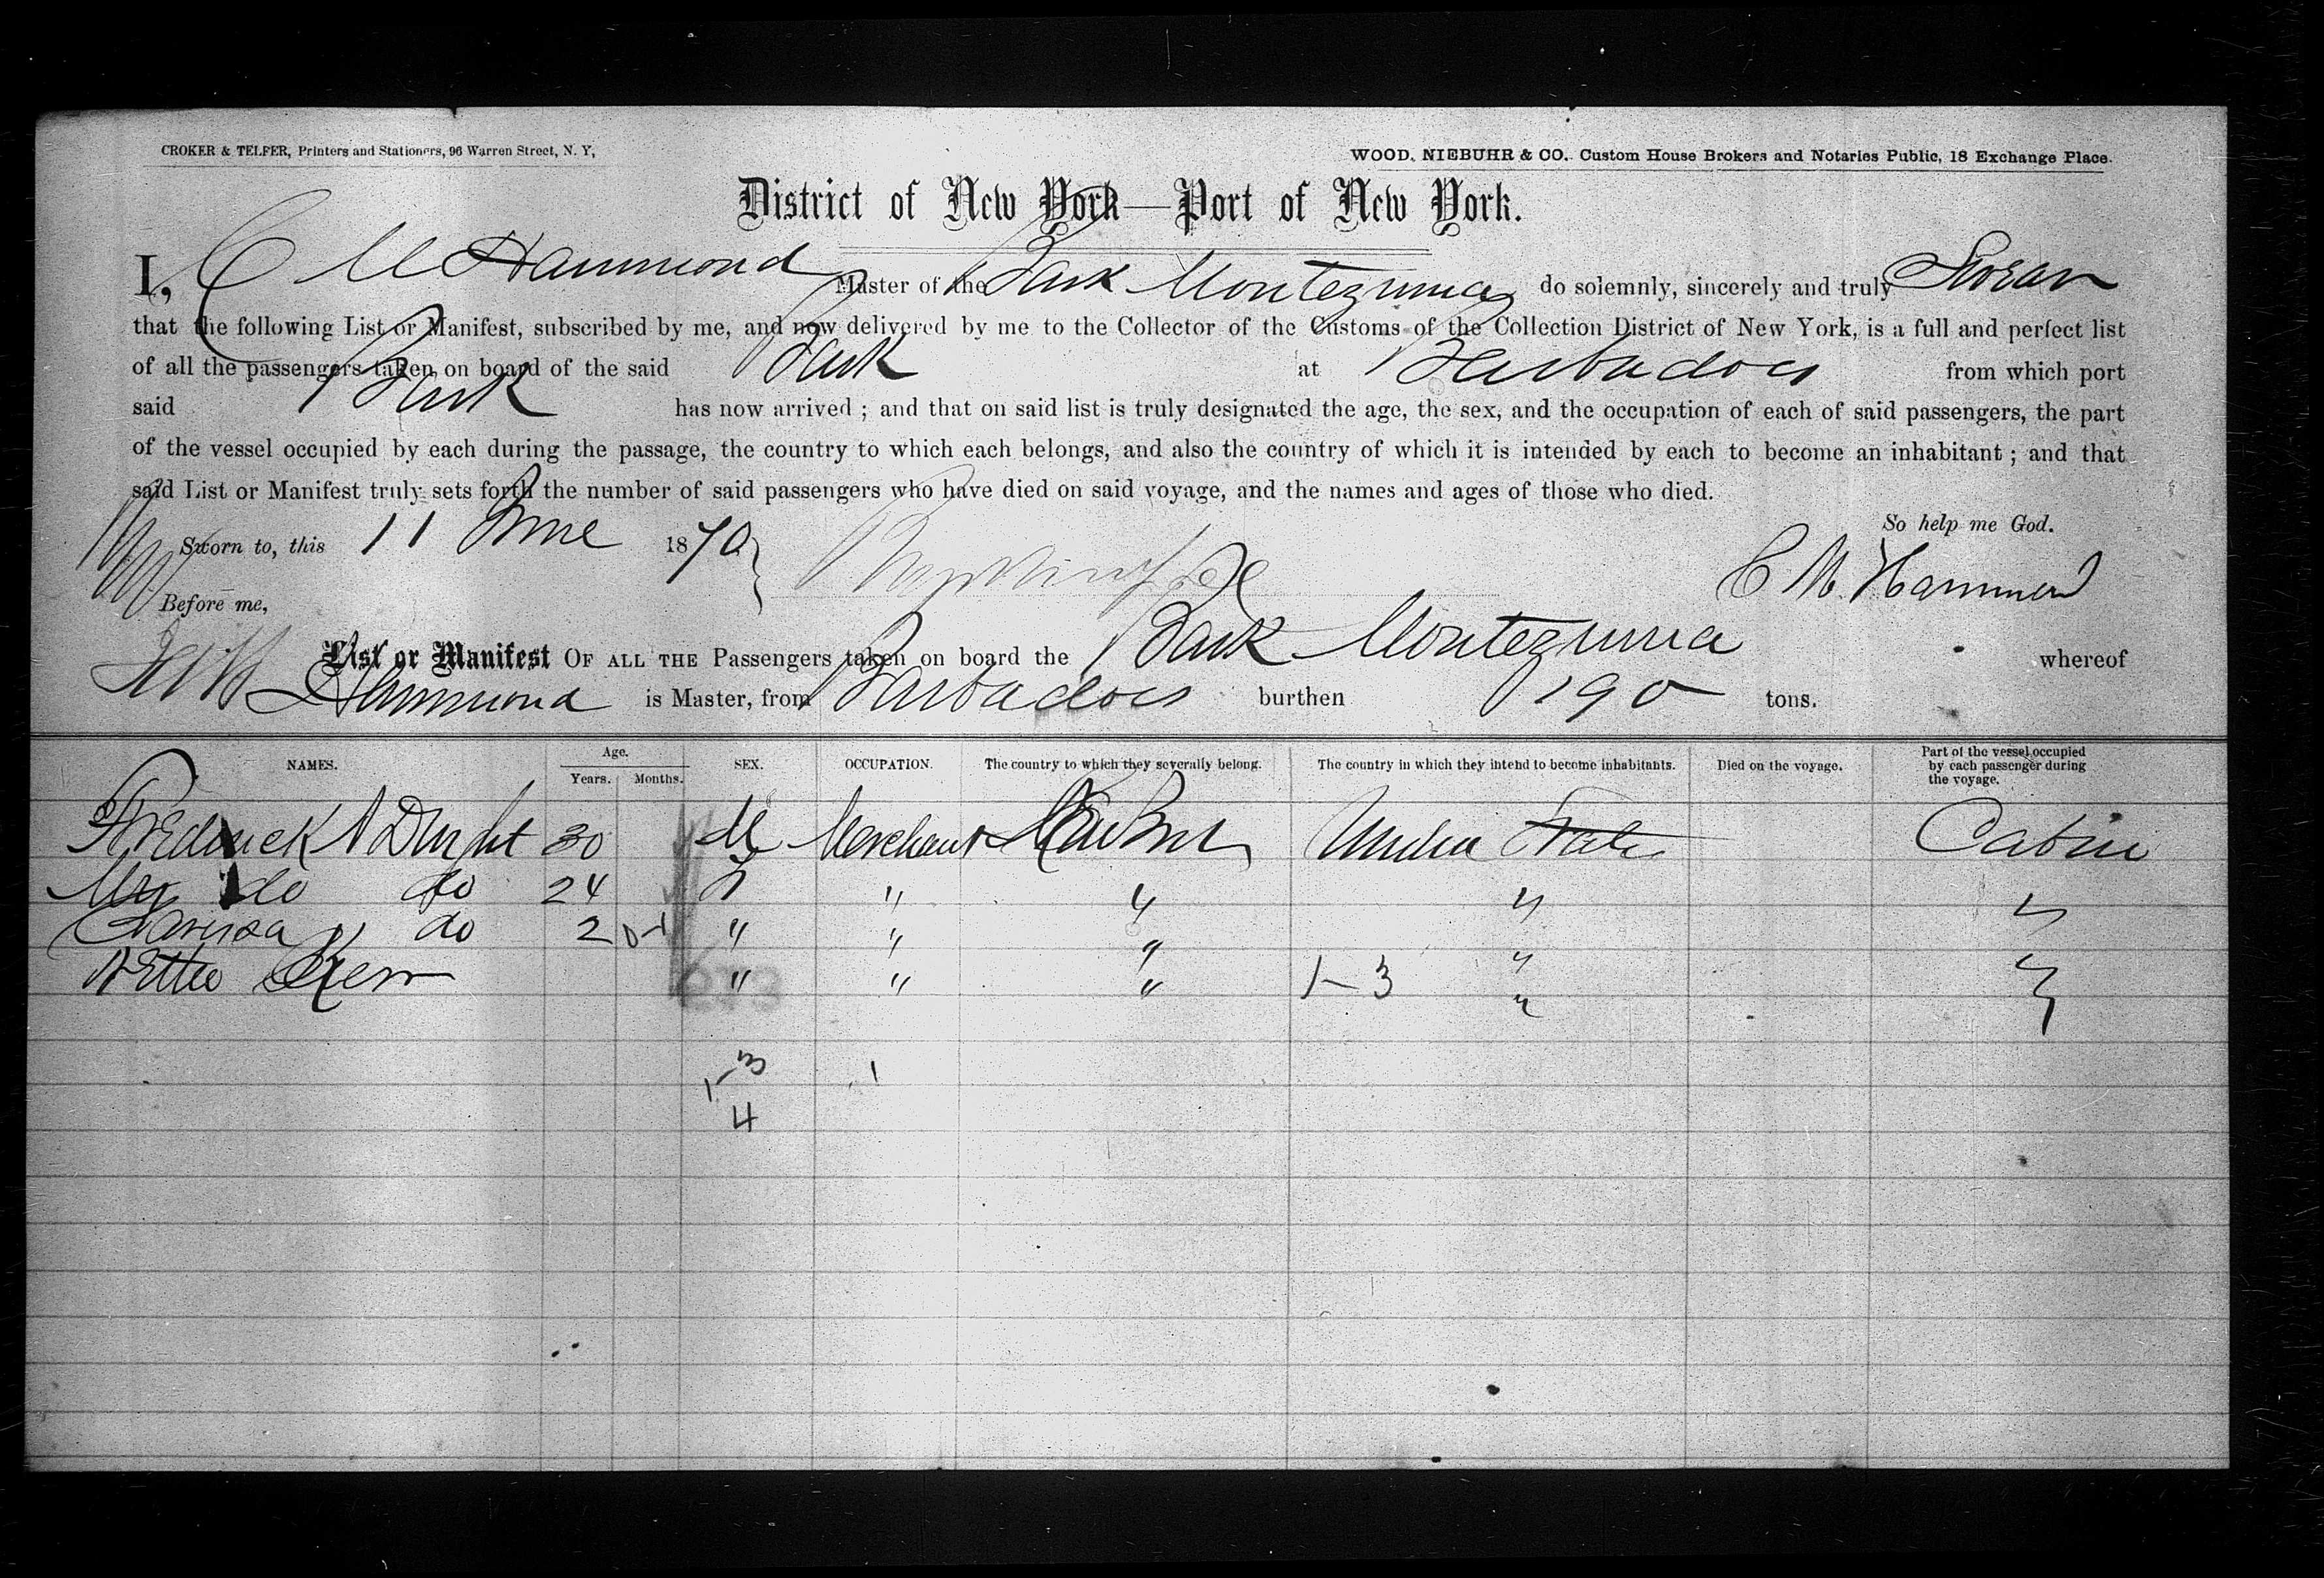 CROKER & TELFER, Printers and Stationers, 96 Warren Street, N. Y,
WOOD, NIEBUHR & CO. Custom House Brokers and Notaries Public, 18 Exchange Place.
District of New York—Port of New York.
I, C M Hammond Master of the Bark Montezuma do solemnly, sincerely and truly Swear
that the following List or Manifest, subscribed by me, and now delivered by me to the Collector of the Customs of the Collection District of New York, is a full and perfect list
of all the passengers taken on board of the said Bark at Barbadoes from which port
said Bark has now arrived ; and that on said list is truly designated the age, the sex, and the occupation of each of said passengers, the part
of the vessel occupied by each during the passage, the country to which each belongs, and also the country of which it is intended by each to become an inhabitant ; and that
said List or Manifest truly sets forth the number of said passengers who have died on said voyage, and the names and ages of those who died.
So help me God.
Sworn to, this 11 June 1870
C M Hammond
Before me,
List or Manifest OF ALL THE Passengers taken on board the Bark Montezuma whereof
Hammond is Master, from Barbadoes burthen 190 tons.
NAMES. Age. Years. Months. SEX. OCCUPATION. The country to which they severally belong. The country in which they intend to become inhabitants. Died on the voyage. Part of the vessel occupied by each passenger during the voyage.
Frederick A Dwight 30 M Merchant United States Cabin
Mrs do do 24 F " " " "
do 2 " " " " "
Kerr " " " 1-3 " "
1-3 1
4